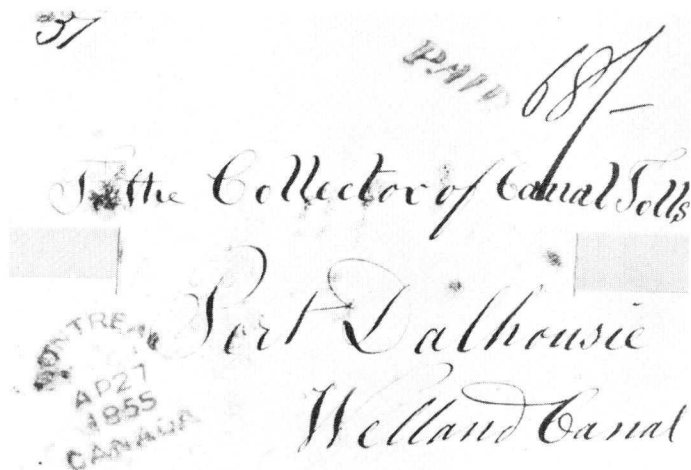 37
PAID
68/-
To the Collector of Canal Tolls
Port Dalhousie
Welland Canal
MONTREAL
AP 27
1855
CANADA